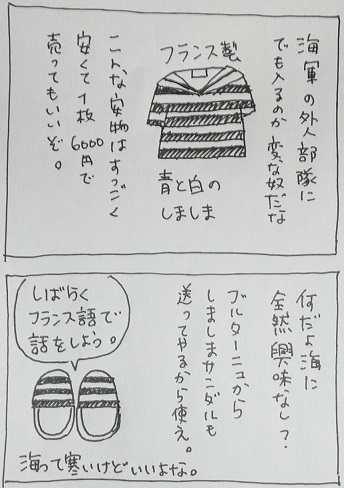 海軍の外人部隊に
でも入るのか変な奴だな
フランス製
青と白の
しましま
こんな安物はすっごく
安くて1枚6000円で
売ってもいいぞ。
何だよ海に
全然興味なし?
ブルターニュから
しましまサンダルも
送ってやるから使え。
しばらく
フランス語で
話をしよう。
海って寒いけどいいよな。